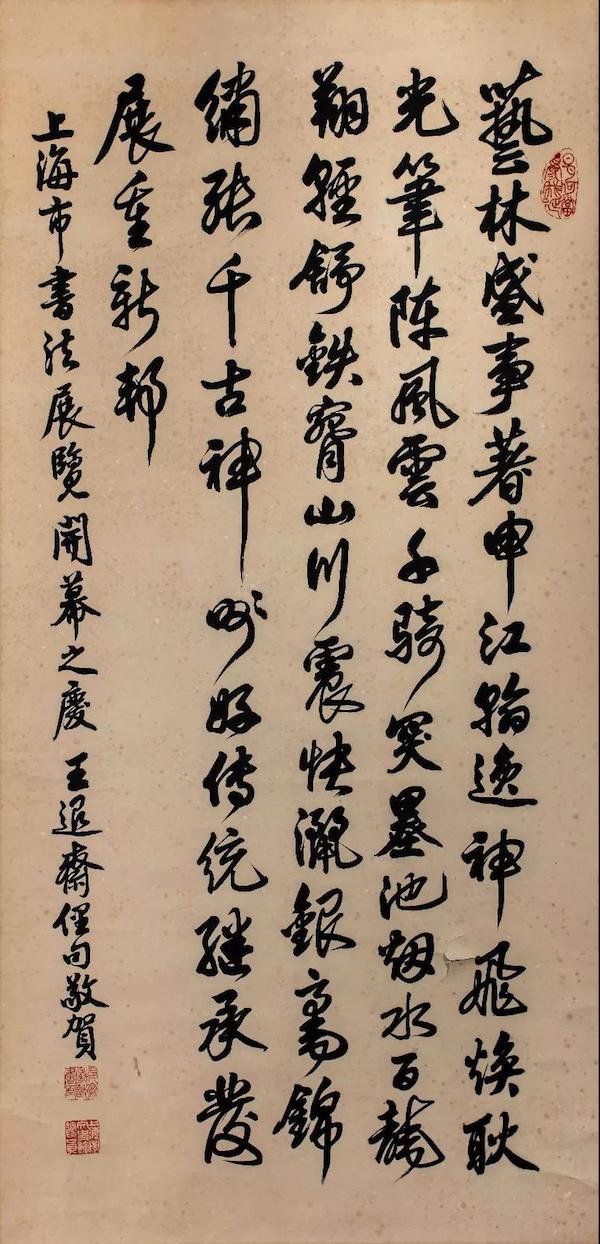 藝林盛事著申江翰逸神飛煥耿
光筆陣風雲千騎突墨池烟水百龍
翔輕舒鐵臂山川震快灑銀毫錦
繡張千古神州好傳統繼承發
展重新邦
上海市書法展覽開幕之慶 王退齋俚句敬賀